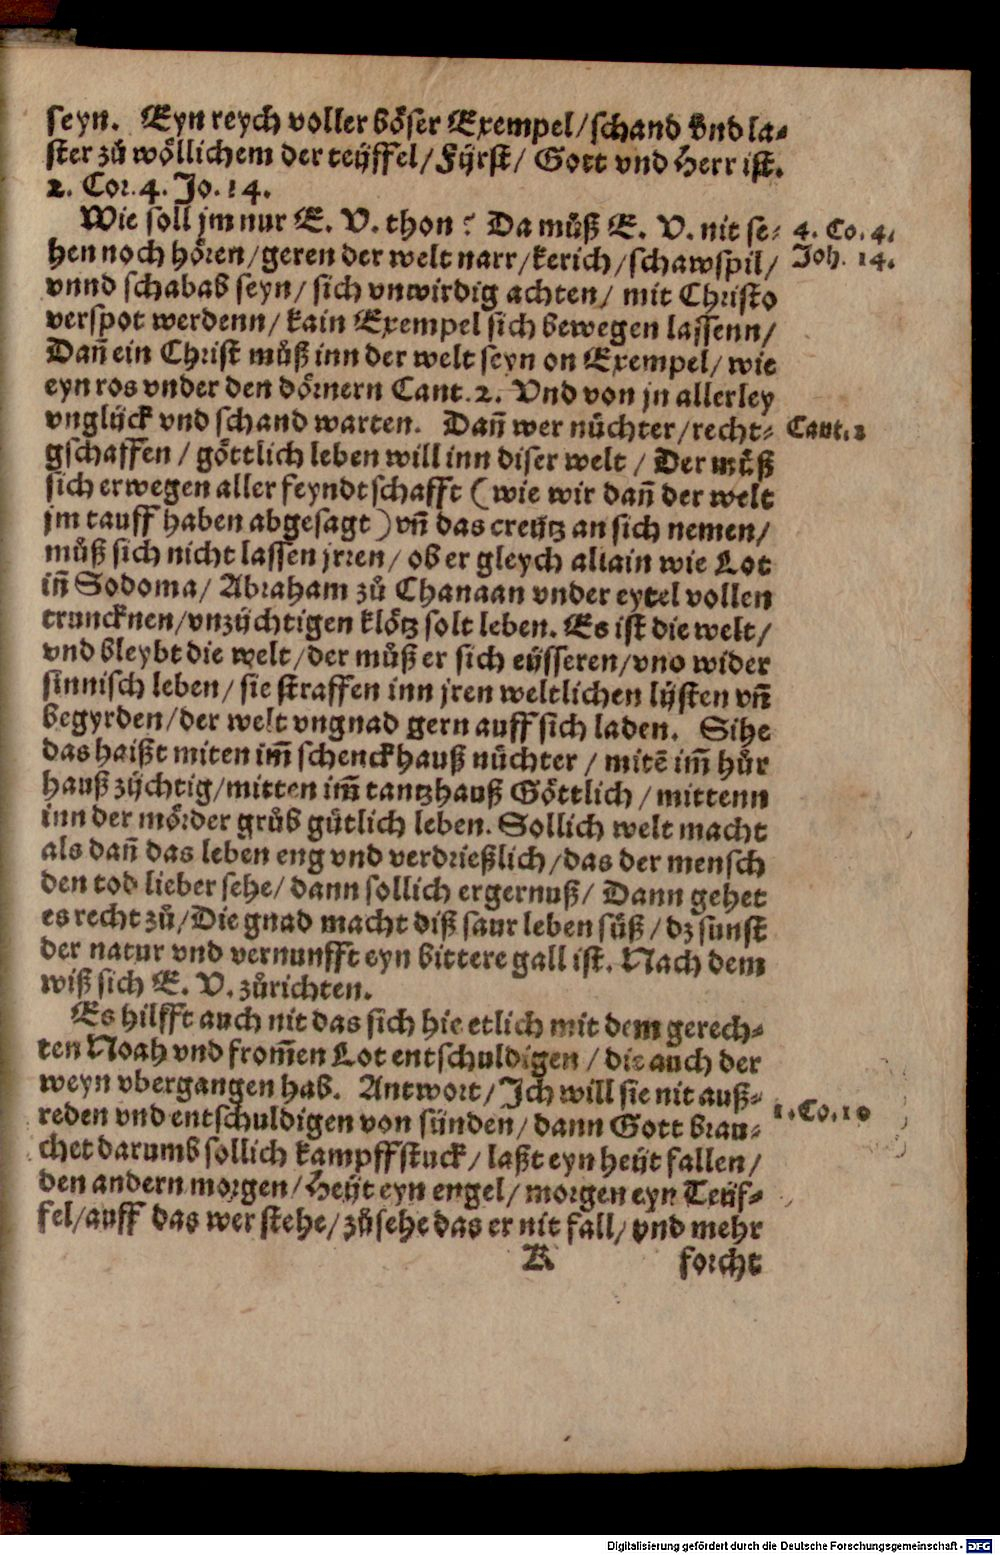 seyn. Eyn reych voller böser Exempel/schand vnd la-
ster zů wöllichem der teÿffel/Fÿrst/ Gott vnd Herr ist.
2. Cor. 4. Jo. 14.
Wie soll jm nur E. V. thon? Da můß E. V. nit se-
4. Co. 4.
hen noch hören/geren der welt narr/kerich/schawspil/
Joh. 14.
vnnd schabab seyn/ sich vnwirdig achten/ mit Christo
verspot werdenn/ kain Exempel sich bewegen lassenn/
Dañ ein Christ můß inn der welt seyn on Exempel/ wie
eyn ros vnder den dörnern Cant. 2. Vnd von jn allerley
vnglÿck vnd schand warten. Dañ wer nůchter/recht-
Cant. 2
gschaffen / göttlich leben will inn diser welt / Der můß
sich erwegen aller feyndtschafft (wie wir dañ der welt
jm tauff haben abgesagt) vñ das creÿtz an sich nemen/
můß sich nicht lassen jrren/ ob er gleych allain wie Lot
iñ Sodoma/ Abraham zů Chanaan vnder eytel vollen
truncknen/vnzÿchtigen klötz solt leben. Es ist die welt/
vnd bleybt die welt/der můß er sich eÿsseren/vno wider
sinnisch leben/ sie straffen inn jren weltlichen lÿsten vñ
begyrden/der welt vngnad gern auff sich laden. Sihe
das haißt miten im̃ schenckhauß nůchter / mitẽ im̃ hůr
hauß zÿchtig/mitten im̃ tantzhauß Göttlich / mittenn
inn der mörder grůb gůtlich leben. Sollich welt macht
als dañ das leben eng vnd verdrießlich/das der mensch
den tod lieber sehe/ dann sollich ergernuß/ Dann gehet
es recht zů/Die gnad macht diß saur leben sůß / dz sunst
der natur vnd vernunfft eyn bittere gall ist. Nach dem
wiß sich E. V. zůrichten.
Es hilfft auch nit das sich hie etlich mit dem gerech-
ten Noah vnd from̃en Lot entschuldigen / die auch der
weyn vbergangen hab. Antwort/ Jch will sie nit auß-
reden vnd entschuldigen von sünden/ dann Gott brau-
1. Co. 10
chet darumb sollich kampffstuck/ laßt eyn heÿt fallen/
den andern morgen/ Heÿt eyn engel/ morgen eyn Teÿf-
fel/auff das wer stehe/ zůsehe das er nit fall/ vnd mehr
K
forcht
Digitalisierung gefördert durch die Deutsche Forschungsgemeinschaft - DFG